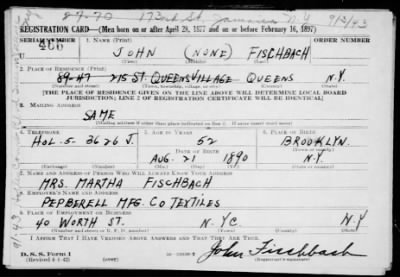 87-70 173rd St. Jamaica N.Y 9/13/43
REGISTRATION CARD—(Men born on or after April 28, 1877 and on or before February 16, 1897)
SERIAL NUMBER 1. NAME (Print) ORDER NUMBER
466 JOHN (NONE) FISCHBACH
(First) (Middle) (Last)
2. PLACE OF RESIDENCE (Print)
89-47 215 ST. QUEENSVILLAGE QUEENS N.Y.
(Number and street) (Town, township, village, or city) (County) (State)
[THE PLACE OF RESIDENCE GIVEN ON THE LINE ABOVE WILL DETERMINE LOCAL BOARD
JURISDICTION; LINE 2 OF REGISTRATION CERTIFICATE WILL BE IDENTICAL]
3. MAILING ADDRESS
SAME
[Mailing address if other than place indicated on line 2. If same insert word same]
4. TELEPHONE 5. AGE IN YEARS 6. PLACE OF BIRTH
HOL-5-3626 J. 52 BROOKLYN.
DATE OF BIRTH
AUG. 21 1890 N.Y
(Exchange) (Number) (Mo.) (Day) (Yr.) (State or country)
7. NAME AND ADDRESS OF PERSON WHO WILL ALWAYS KNOW YOUR ADDRESS
MRS. MARTHA FISCHBACH
8. EMPLOYER'S NAME AND ADDRESS
PEPBERELL MFG. CO TEXTILES
9. PLACE OF EMPLOYMENT OR BUSINESS
40 WORTH ST. N. YC. N.Y
(Number and street or R. F. D. number) (Town) (County) (State)
I AFFIRM THAT I HAVE VERIFIED ABOVE ANSWERS AND THAT THEY ARE TRUE.
D. S. S. Form 1
(Revised 4-1-42) (over) John Fischbach